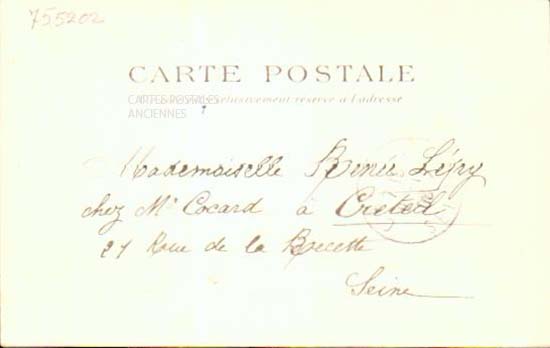 755202
CARTE POSTALE
CARTES POSTALES
ANCIENNES
exclusivement réservé à l'adresse
Mademoiselle Renée Lépy
chez Mr Cocard à Créteil
27 Rue de la Recette
Seine